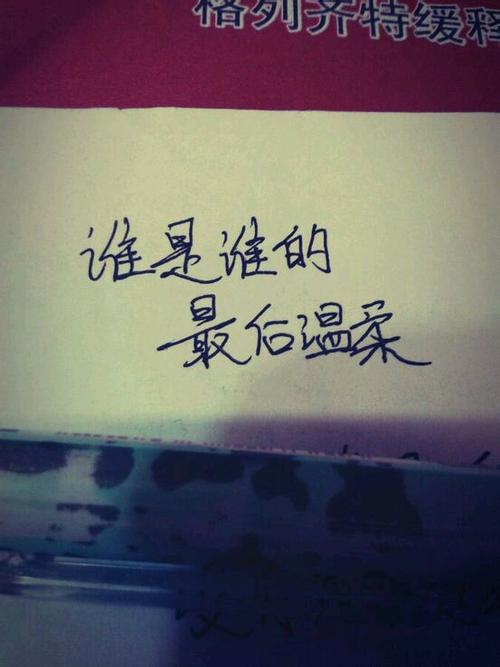 格列齐特缓释
谁是谁的
最后温柔